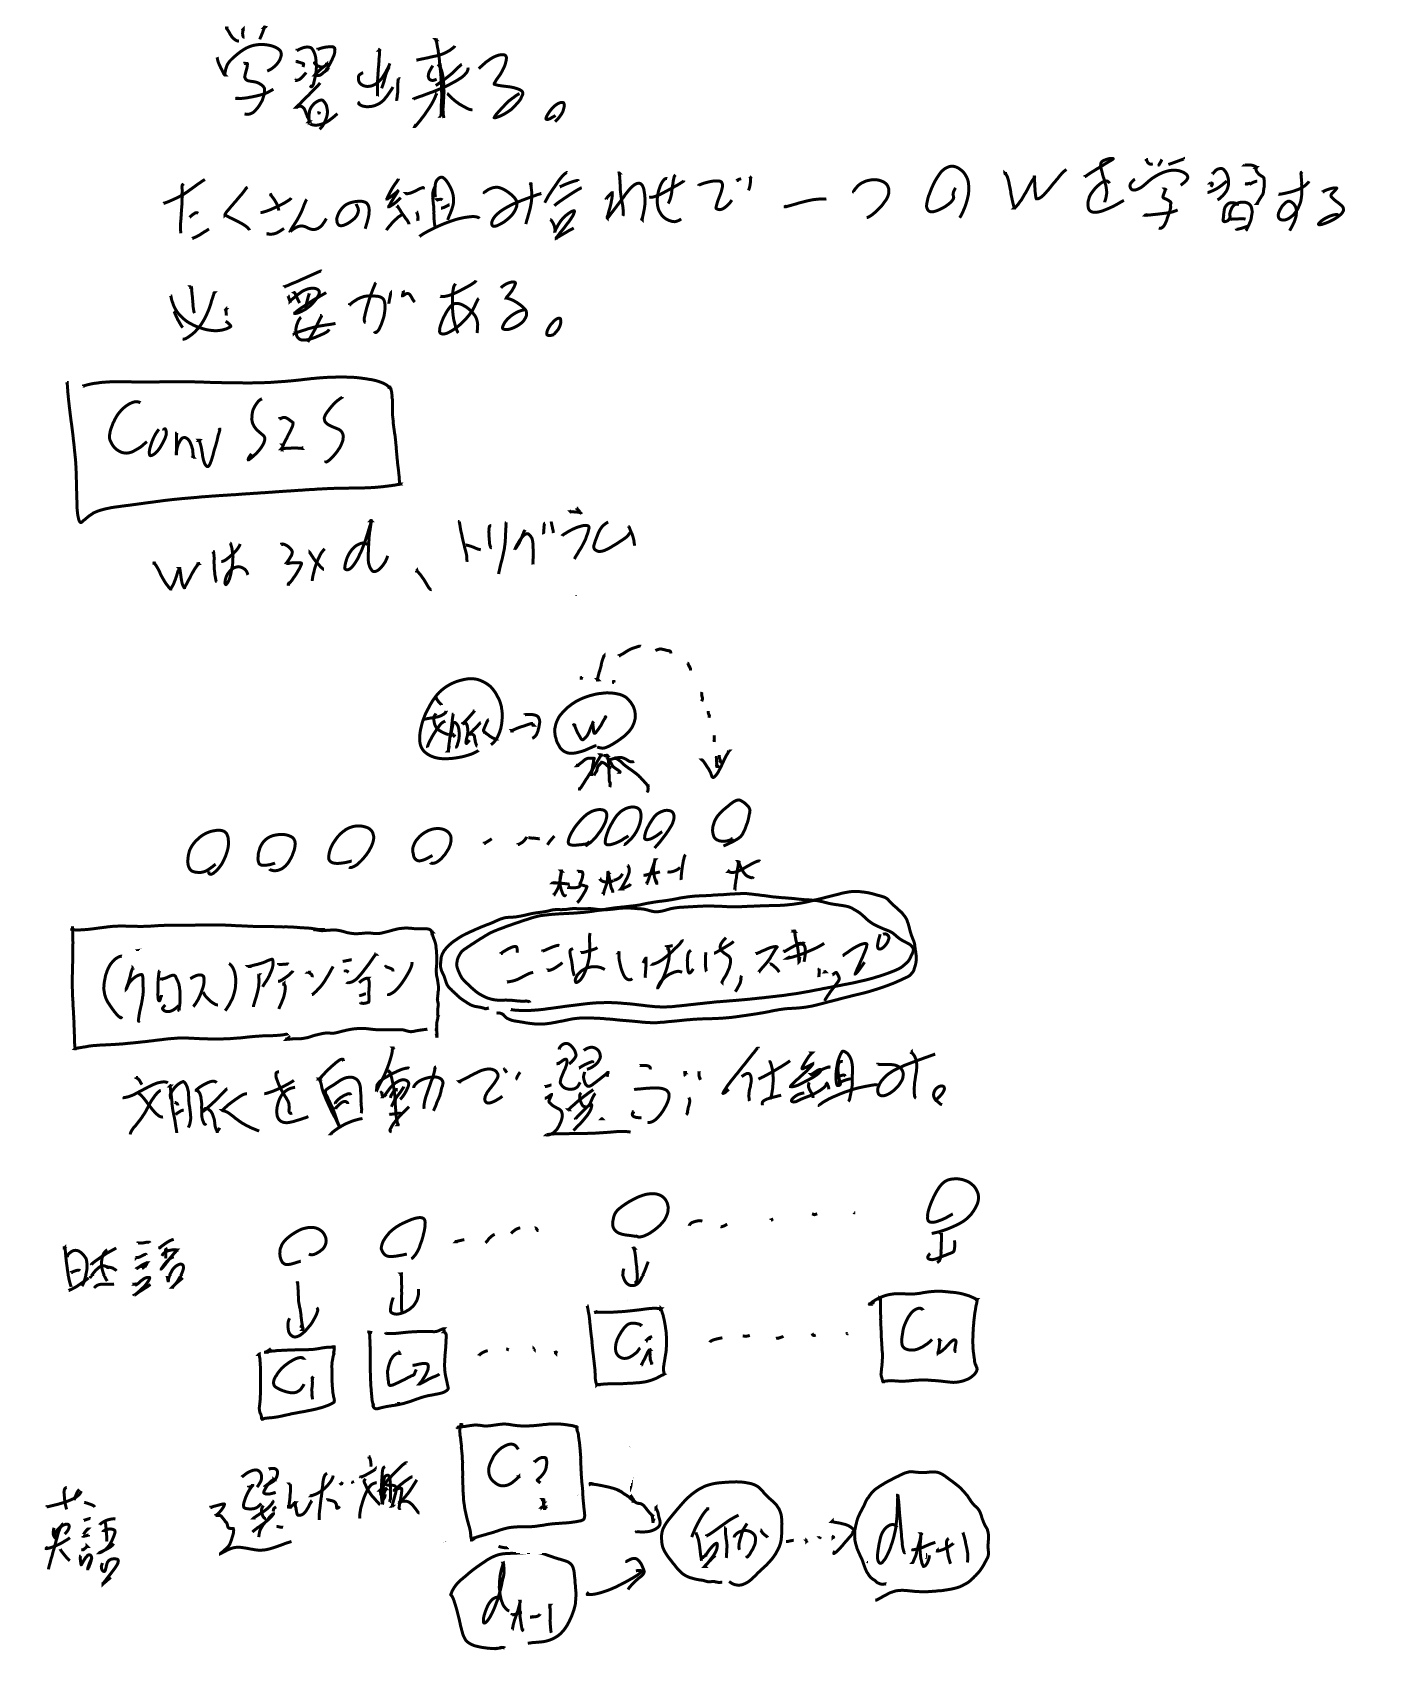 学習出来る。
たくさんの組み合わせで一つのWを学習する
必要がある。
Conv S2S
Wは3×d、トリグラム
文脈 → W
t-3 t-2 t-1 t
(クロス)アテンション
ここはいまいち,スキップ
文脈を自動で選ぶ仕組み。
日本語
C1 C2 .... Ci ...... Cn
英語 選んだ文脈 C?
dt-1 何か dt+1